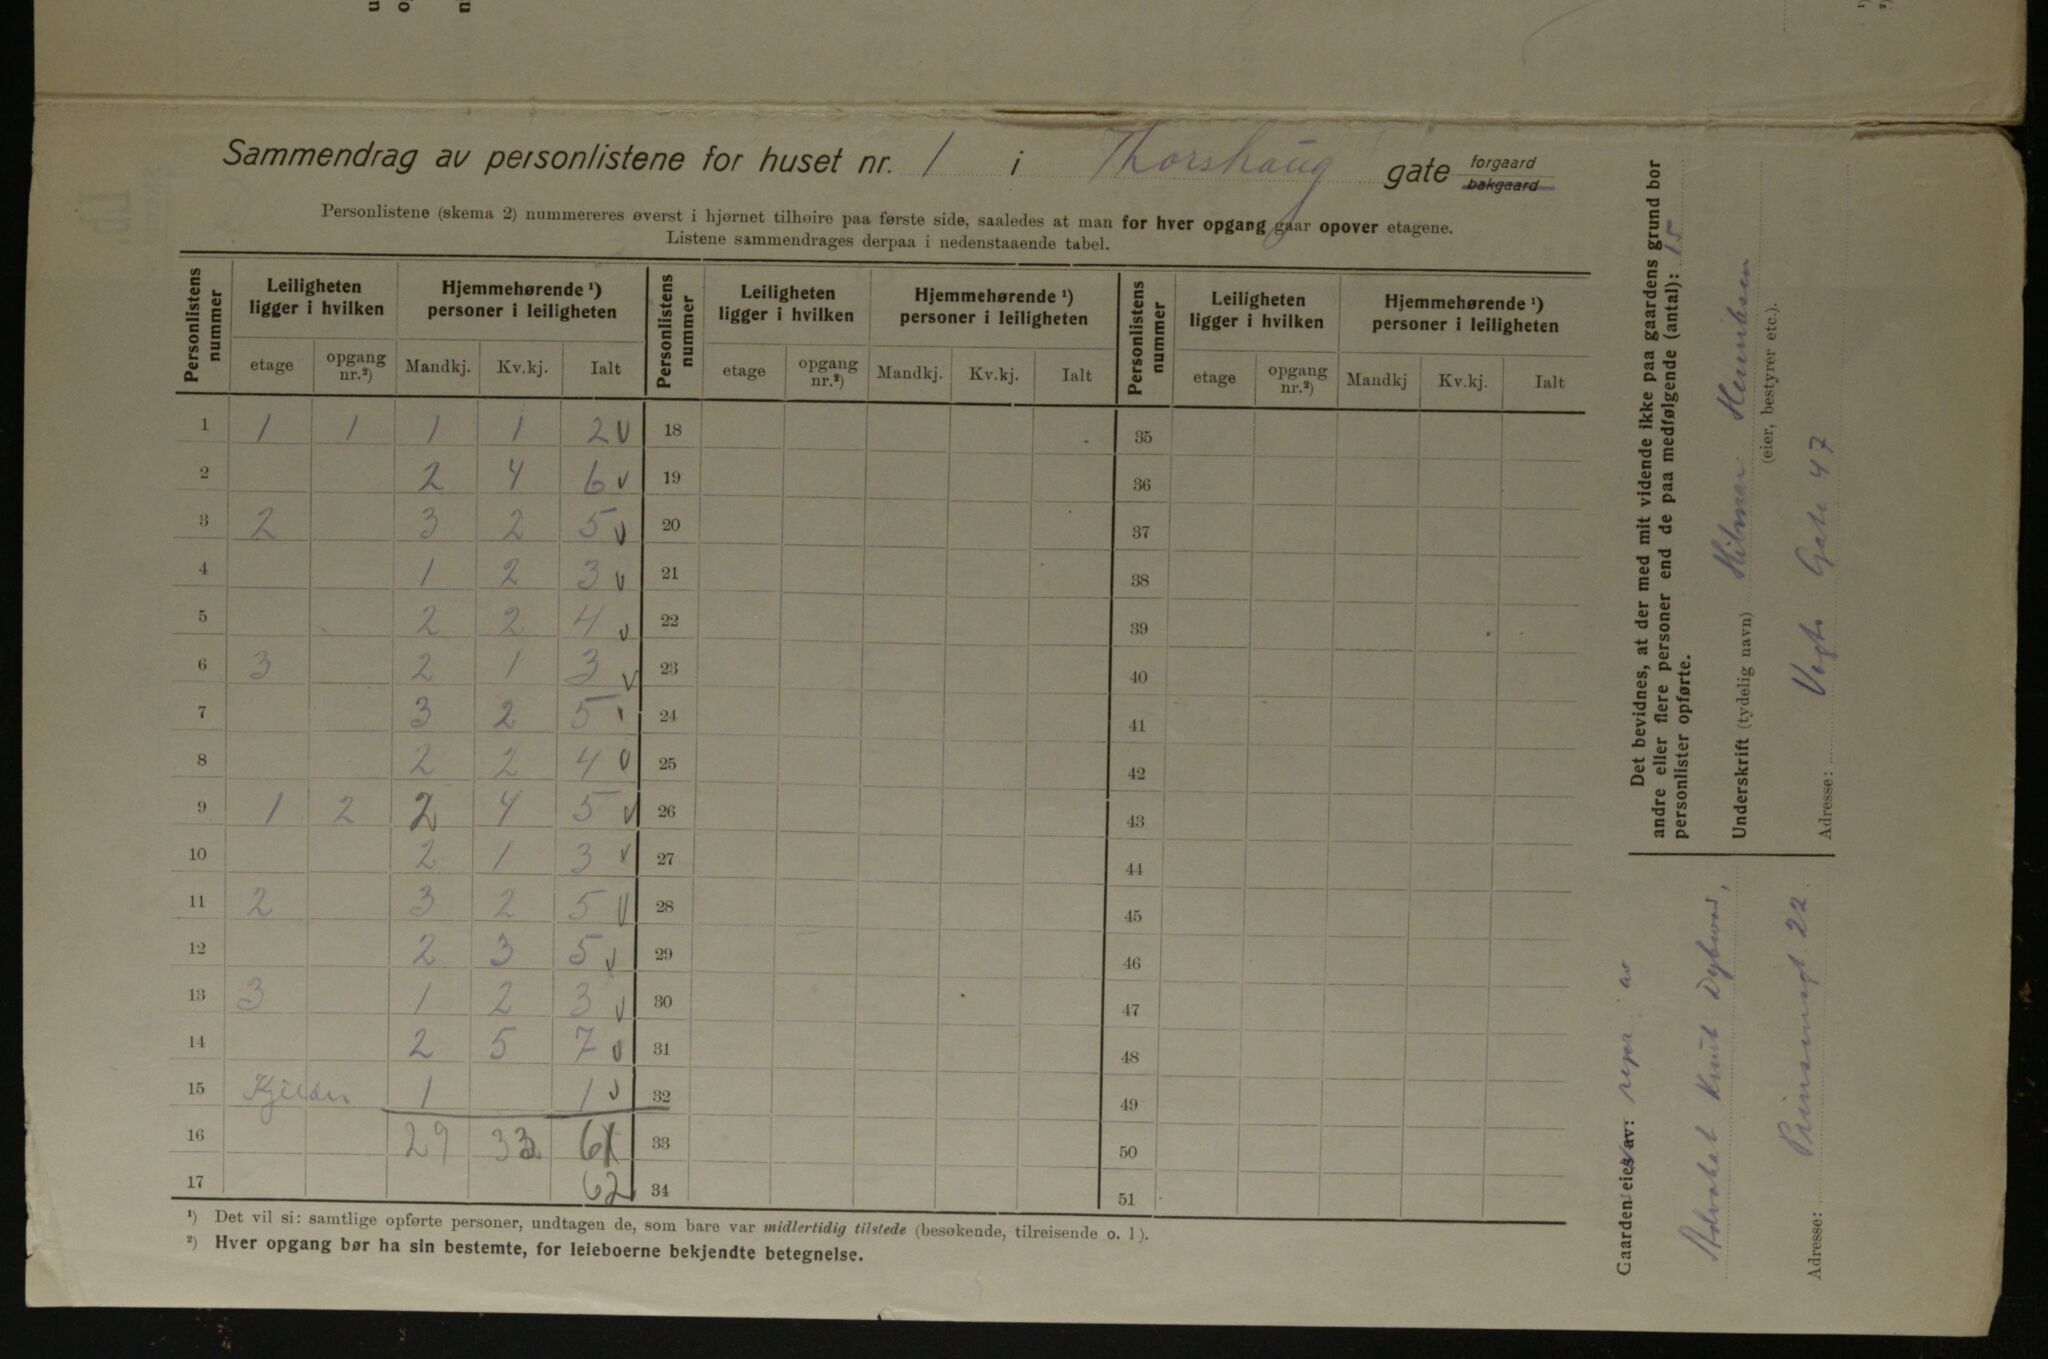 Sammendrag av personlistene for huset nr. 1 i Thorshaug gate forgaard bakgaard
Personlistene (skema 2) nummereres øverst i hjørnet tilhøire paa første side, saaledes at man for hver opgang gaar opover etagene.
Listene sammendrages derpaa i nedenstaaende tabel.
Personlistens nummer | Leiligheten ligger i hvilken | Hjemmehørende ¹) personer i leiligheten | Personlistens nummer | Leiligheten ligger i hvilken | Hjemmehørende ¹) personer i leiligheten | Personlistens nummer | Leiligheten ligger i hvilken | Hjemmehørende ¹) personer i leiligheten
etage | opgang nr.²) | Mandkj. | Kv.kj. | Ialt | etage | opgang nr.²) | Mandkj. | Kv.kj. | Ialt | etage | opgang nr.²) | Mandkj | Kv.kj. | Ialt
1 | 1 | 1 | 1 | 1 | 2 v | 18 | 35
2 | 2 | 4 | 6 v | 19 | 36
3 | 2 | 3 | 2 | 5 v | 20 | 37
4 | 1 | 2 | 3 v | 21 | 38
5 | 2 | 2 | 4 v | 22 | 39
6 | 3 | 2 | 1 | 3 v | 23 | 40
7 | 3 | 2 | 5 v | 24 | 41
8 | 2 | 2 | 4 v | 25 | 42
9 | 1 | 2 | 2 | 4 | 5 v | 26 | 43
10 | 2 | 1 | 3 v | 27 | 44
11 | 2 | 3 | 2 | 5 v | 28 | 45
12 | 2 | 3 | 5 v | 29 | 46
13 | 3 | 1 | 2 | 3 v | 30 | 47
14 | 2 | 5 | 7 v | 31 | 48
15 | Kjelder | 1 | 1 v | 32 | 49
16 | 29 | 33 | 61 | 33 | 50
17 | 62 | 34 | 51
¹) Det vil si: samtlige opførte personer, undtagen de, som bare var midlertidig tilstede (besøkende, tilreisende o. l).
²) Hver opgang bør ha sin bestemte, for leieboerne bekjendte betegnelse.
Det bevidnes, at der med mit vidende ikke paa gaardens grund bor
andre eller flere personer end de paa medfølgende (antal): 15
personlister opførte.
Underskrift (tydelig navn) Hilmar Henriksen
(eier, bestyrer etc.).
Adresse: Vogts Gate 47
Gaarden eies av: repr. av
Advokat Knut Dybwad,
Adresse: Prinsensgt. 22.